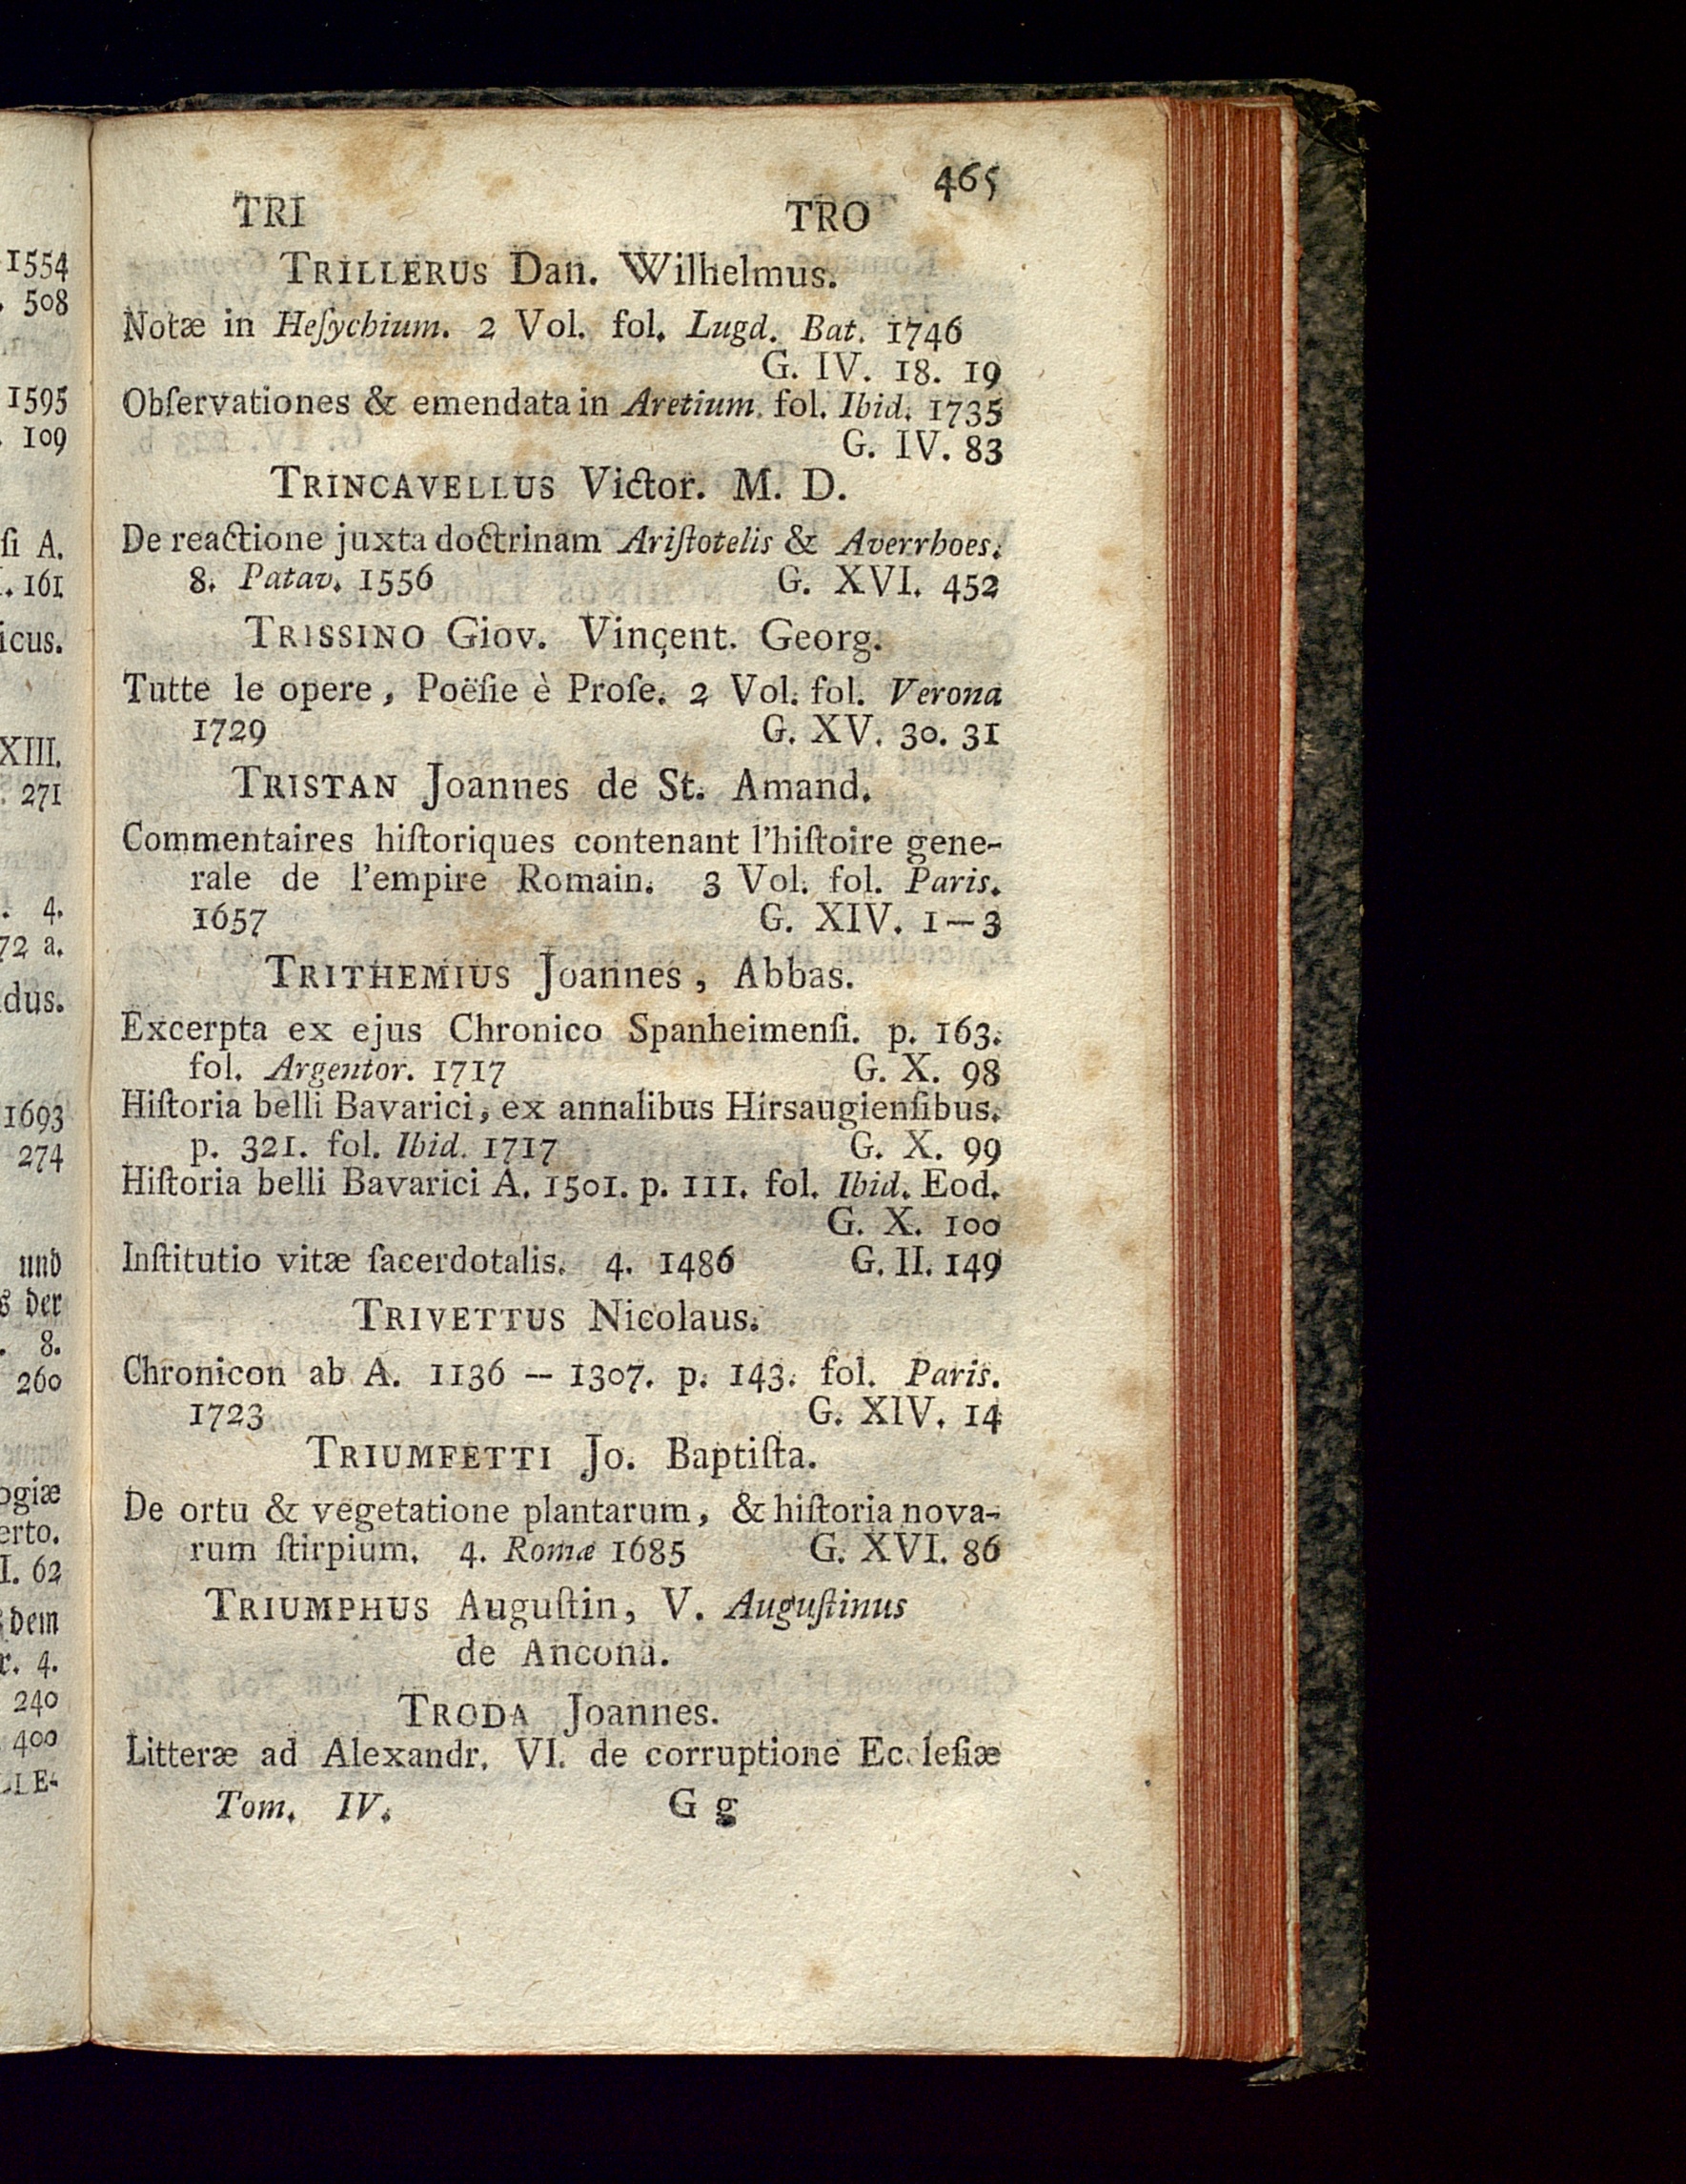 465
TRI TRO
TRILLERUS Dan. Wilhelmus.
Notæ in Heſychium. 2 Vol. fol. Lugd. Bat. 1746
G. IV. 18. 19
Obſervationes & emendata in Aretium. fol. Ibid. 1735
G. IV. 83
TRINCAVELLUS Victor. M. D.
De reactione juxta doctrinam Ariſtotelis & Averrhoes.
8. Patav. 1556 G. XVI. 452
TRISSINO Giov. Vinçent. Georg.
Tutte le opere, Poëſie è Proſe. 2 Vol. fol. Verona
1729 G. XV. 30. 31
TRISTAN Joannes de St. Amand.
Commentaires hiſtoriques contenant l'hiſtoire gene-
rale de l'empire Romain. 3 Vol. fol. Paris.
1657 G. XIV. 1—3
TRITHEMIUS Joannes, Abbas.
Excerpta ex ejus Chronico Spanheimenſi. p. 163.
fol. Argentor. 1717 G. X. 98
Hiſtoria belli Bavarici, ex annalibus Hirsaugienſibus.
p. 321. fol. Ibid. 1717 G. X. 99
Hiſtoria belli Bavarici A. 1501. p. 111. fol. Ibid. Eod.
G. X. 100
Inſtitutio vitæ ſacerdotalis. 4. 1486 G. II. 149
TRIVETTUS Nicolaus.
Chronicon ab A. 1136 — 1307. p. 143. fol. Paris.
1723 G. XIV. 14
TRIUMFETTI Jo. Baptiſta.
De ortu & vegetatione plantarum, & hiſtoria nova-
rum ſtirpium. 4. Romæ 1685 G. XVI. 86
TRIUMPHUS Auguſtin, V. Auguſtinus
de Ancona.
TRODA Joannes.
Litteræ ad Alexandr. VI. de corruptione Eccleſiæ
Tom. IV. G g
1554
508
1595
109
ſi A.
161
icus.
XIII.
271
4.
72 a.
dus.
1693
274
und
der
8.
260
ogiæ
erto.
I. 62
dem
r. 4.
240
400